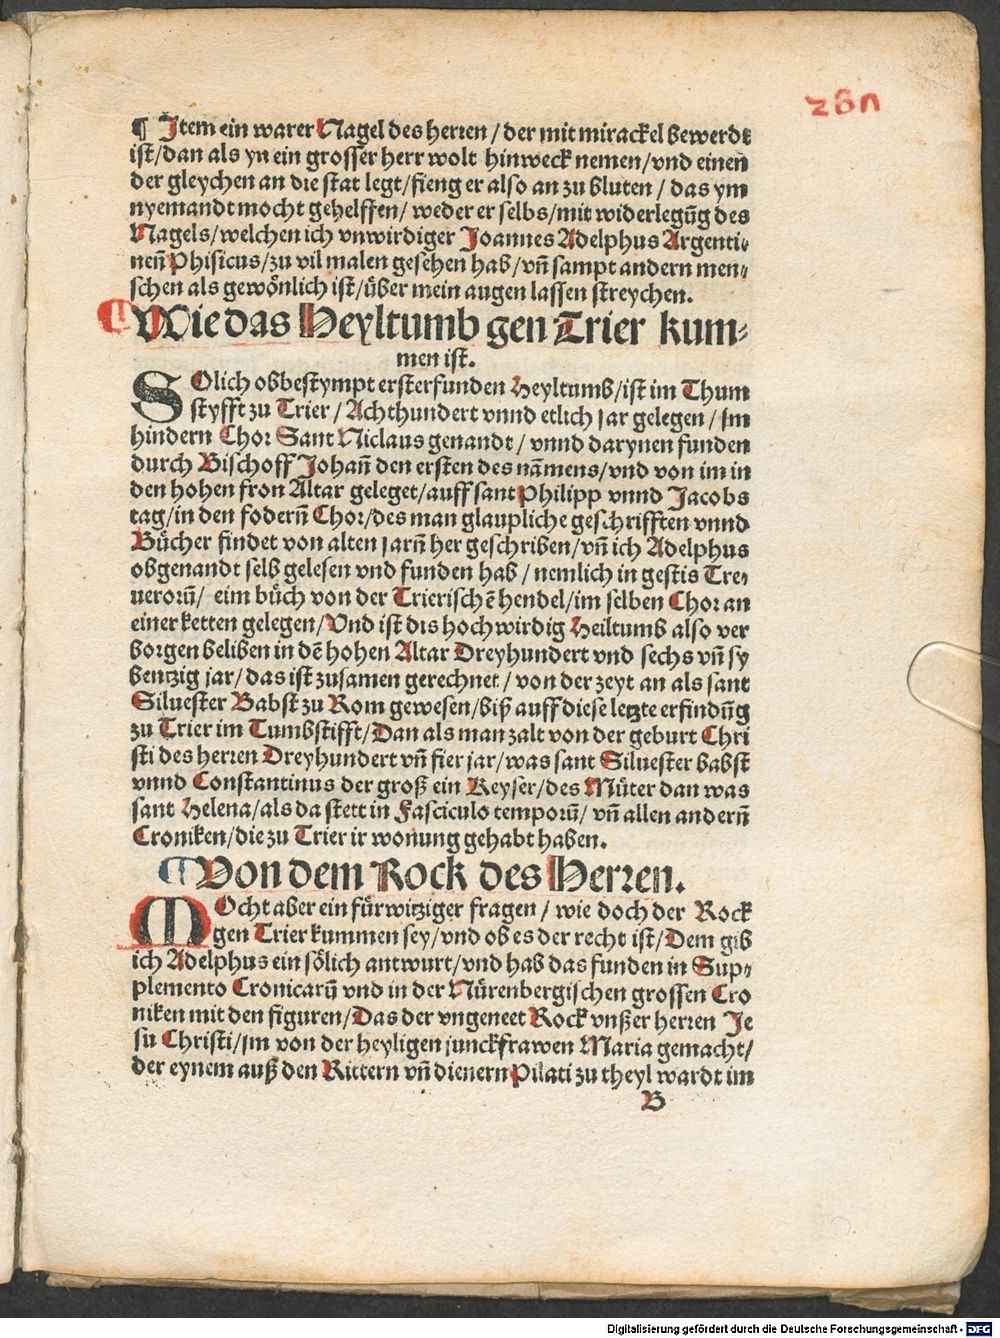 280
¶ Item ein warer Nagel des herren / der mit mirackel bewerdt
ist/dan als yn ein grosser herr wolt hinweck nemen/vnd einen̄
der gleychen an die stat legt/fieng er also an zu bluten / das ym
nyemandt mocht gehelffen/ weder er selbs/mit widerlegūg des
Nagels/welchen ich vnwirdiger Joannes Adelphus Argenti⸗
nen̄ Phisicus/zu vil malen gesehen hab/vn̄ sampt andern men⸗
schen als gewönlich ist/über mein augen lassen streychen.
¶ Wie das Heyltumb gen Trier kum⸗
men ist.
SOlich obbestympt ersterfunden Heyltumb/ist im Thum
styfft zu Trier / Achthundert vnnd etlich jar gelegen / Im
hindern Chor Sant Niclaus genandt / vnnd darynen funden
durch Bischoff Johan̄ den ersten des nāmens/vnd von im in
den hohen fron Altar geleget/auff sant Philipp vnnd Jacobs
tag/in den fodern̄ Chor/des man glaupliche geschrifften vnnd
Bücher findet von alten jarn̄ her geschriben/vn̄ ich Adelphus
obgenandt selb gelesen vnd funden hab / nemlich in gestis Tre⸗
uerorū/ eim bůch von der Trierischē hendel/im selben Chor an
einer ketten gelegen/Vnd ist dis hochwirdig Heiltumb also ver
borgen beliben in dē hohen Altar Dreyhundert vnd sechs vn̄ sy
bentzig jar/das ist zusamen gerechnet / von der zeyt an als sant
Siluester Babst zu Rom gewesen/biß auff diese letzte erfindūg
zu Trier im Tumbstifft/Dan als man zalt von der geburt Chri
sti des herren Dreyhundert vn̄ fier jar/was sant Siluester babst
vnnd Constantinus der groß ein Keyser/des Můter dan was
sant Helena/als da stett in Fasciculo temporū/ vn̄ allen andern̄
Croniken/die zu Trier ir wonung gehabt haben.
¶ Von dem Rock des Herren.
MOcht aber ein fürwitziger fragen / wie doch der Rock
gen Trier kummen sey/vnd ob es der recht ist/Dem gib
ich Adelphus ein sölich antwurt/vnd hab das funden in Sup⸗
plemento Cronicarū vnd in der Nürenbergischen grossen Cro
niken mit den figuren/Das der vngeneet Rock vnßer herren Je
su Christi/im von der heyligen junckfrawen Maria gemacht/
der eynem auß den Rittern vn̄ dienern Pilati zu theyl wardt im
B
Digitalisierung gefördert durch die Deutsche Forschungsgemeinschaft - DFG